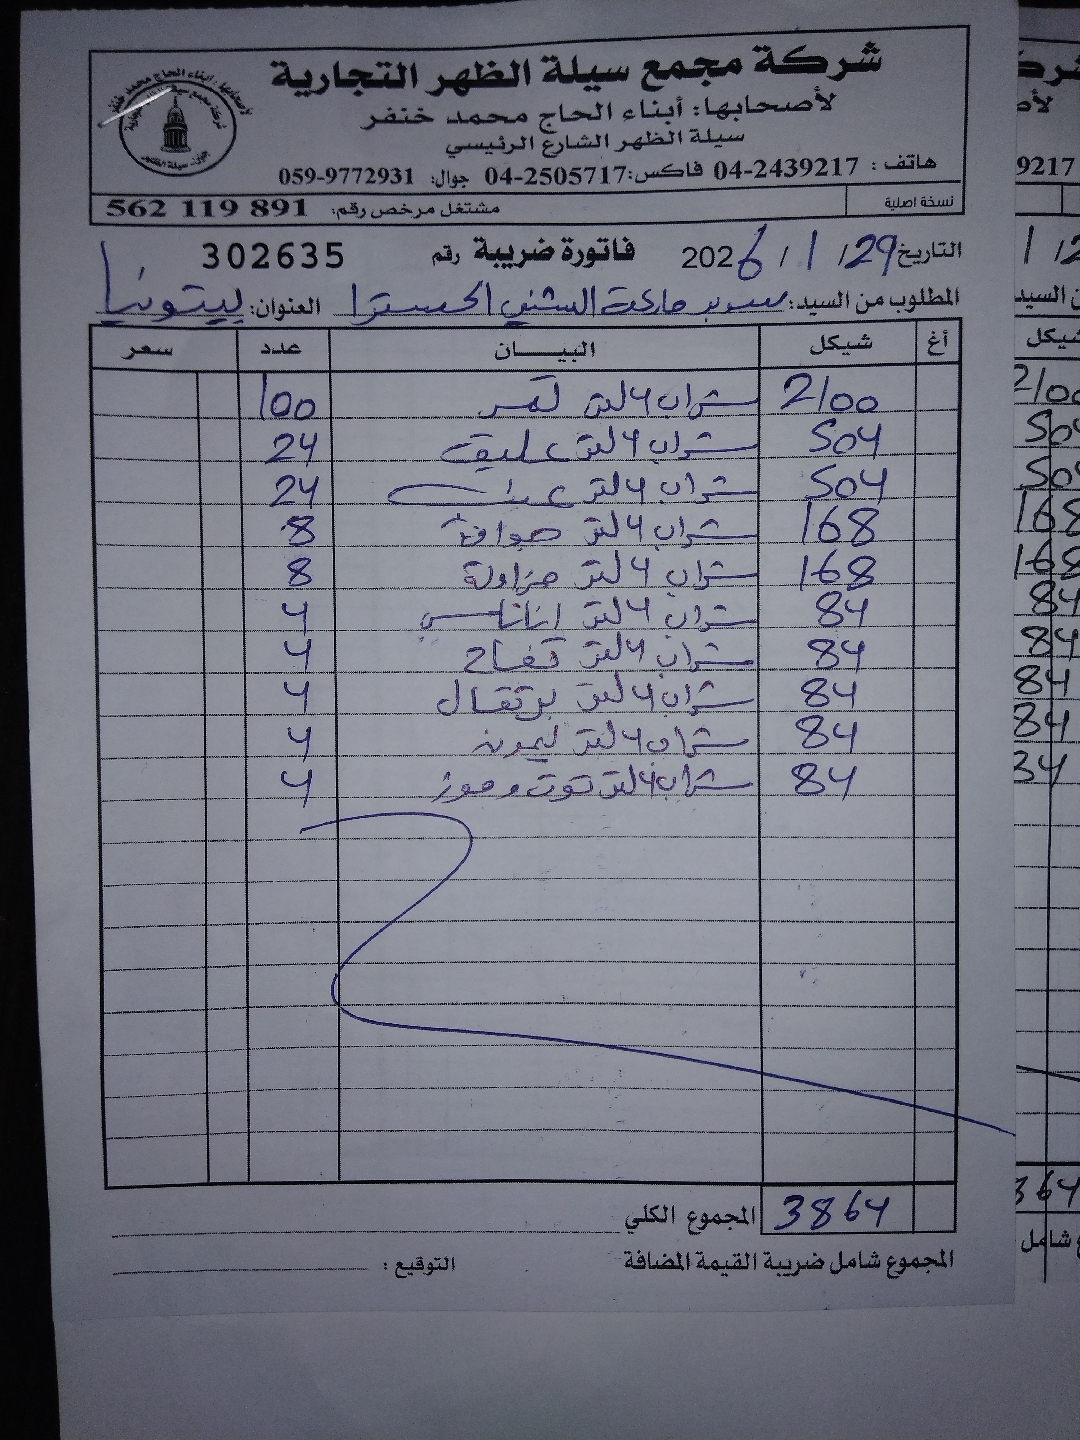 شركة مجمع سيلة الظهر التجارية
لأصحابها: أبناء الحاج محمد خنفر
سيلة الظهر الشارع الرئيسي
هاتف : 04-2439217 فاكس: 04-2505717 جوال: 059-9772931
نسخة اصلية مشتغل مرخص رقم: 562 119 891
التاريخ 29/ 1 / 2026 فاتورة ضريبة رقم 302635
المطلوب من السيد: سوبر ماركت العنوان: بيتونيا
أغ شيكل البيـــان عدد سعر
2100 شراب 4 لتر تمر 100
504 شراب 4 لتر عليق 24
504 شراب 4 لتر عنب 24
168 شراب 4 لتر جوافة 8
168 شراب 4 لتر فراولة 8
84 شراب 4 لتر اناناس 4
84 شراب 4 لتر تفاح 4
84 شراب 4 لتر برتقال 4
84 شراب 4 لتر ليمون 4
84 شراب 4 لتر توت وموز 4
3864 المجموع الكلي
المجموع شامل ضريبة القيمة المضافة التوقيع :